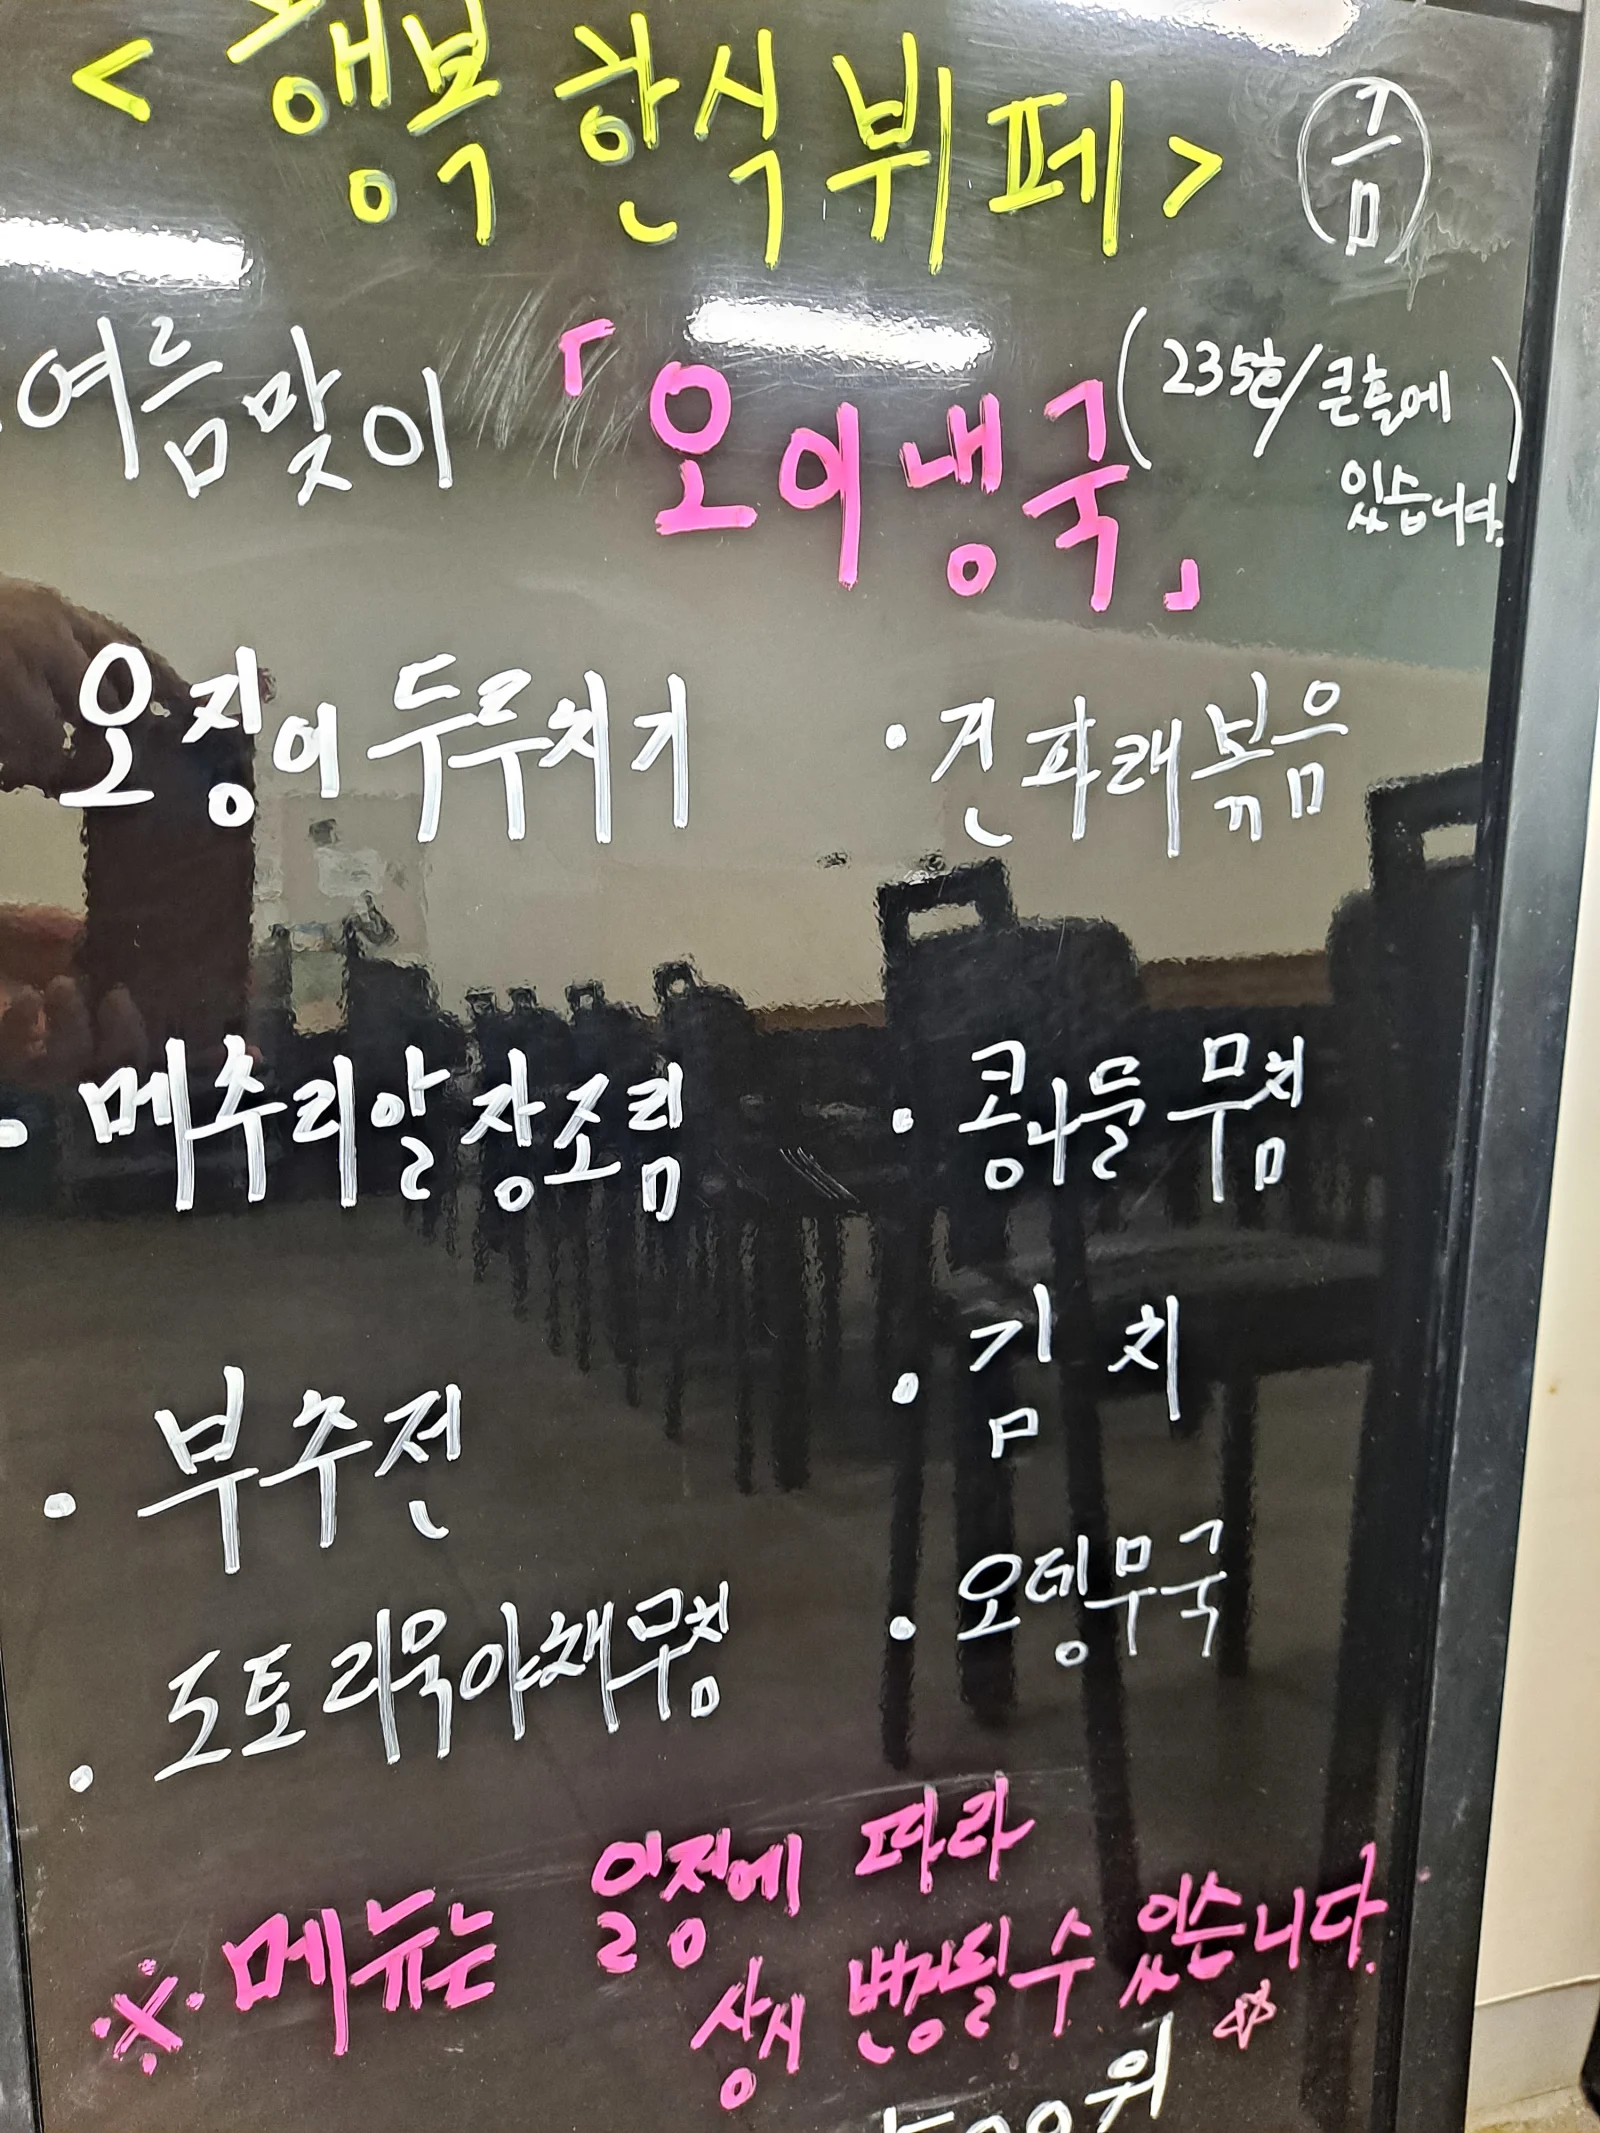 <행복 한식 뷔페> 금
여름맞이 「오이냉국」 (235호/큰홀에
있습니다.)
오징어 두루치기 · 건파래볶음
· 메추리알장조림 · 콩나물 무침
· 부추전 · 김치
· 도토리묵야채무침 · 오뎅무국
※ 메뉴는 일정에 따라
상시 변경될 수 있습니다. ☆
500원